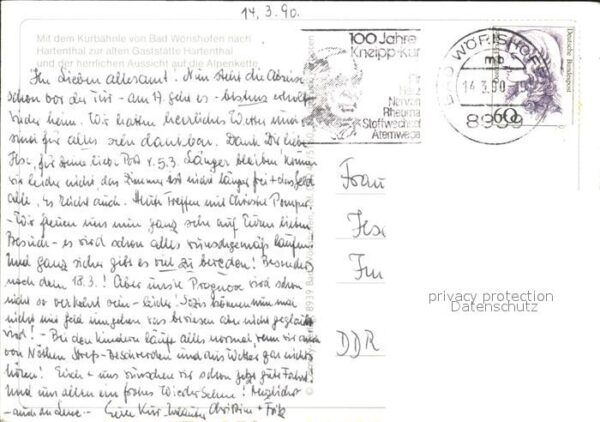 14.3.90.
Mit dem Kurbähnle von Bad Wörishofen nach
Hartenthal zur alten Gaststätte Hartenthal
und der herrlichen Aussicht auf die Alpenkette
100 Jahre
Kneipp-Kur
Für
Herz
Nerven
Rheuma
Stoffwechsel
Atemwege
BAD WÖRISHOFEN
mb
14.3.90
8939
Deutsche Bundespost
60
Ihr Lieben allesamt! Nun steht die Abreise
schon vor der Tür - am 17. geht es - bestens erholt
wieder heim. Wir hatten herrliches Wetter und
sind für alles sehr dankbar. Dank Dir liebe
Ilse, für Deine liebe Post v. 5.3. Länger bleiben können
wir leider nicht, das Zimmer ist nicht länger frei + das Geld
alle. Es reicht auch. Heute treffen mit Christe
- Wir freuen uns nun ganz sehr auf Euren lieben
Besuch - es wird schon alles wunschgemäß laufen!
Und ganz sicher gibt es viel zu bereden! Besonders
nach dem 18.3! Aber unsre Prognose wird schon
nicht so verkehrt sein - leider! Sozis können nun mal
nicht mit Geld umgehen was bewiesen aber nicht geglaubt
wird! - Bei den Kindern läuft alles normal, wenn wir auch
von Nöthen Streß-Beschwerden und aus Wetter gar nichts
hören! Euch + uns wünschen wir schon jetzt gute Fahrt!
Und uns allen ein frohes Wiedersehen! Herzlichst
- auch an Lene - Eure Kur-urlauber Christine + Fritz
Frau
DDR
privacy protection
Datenschutz